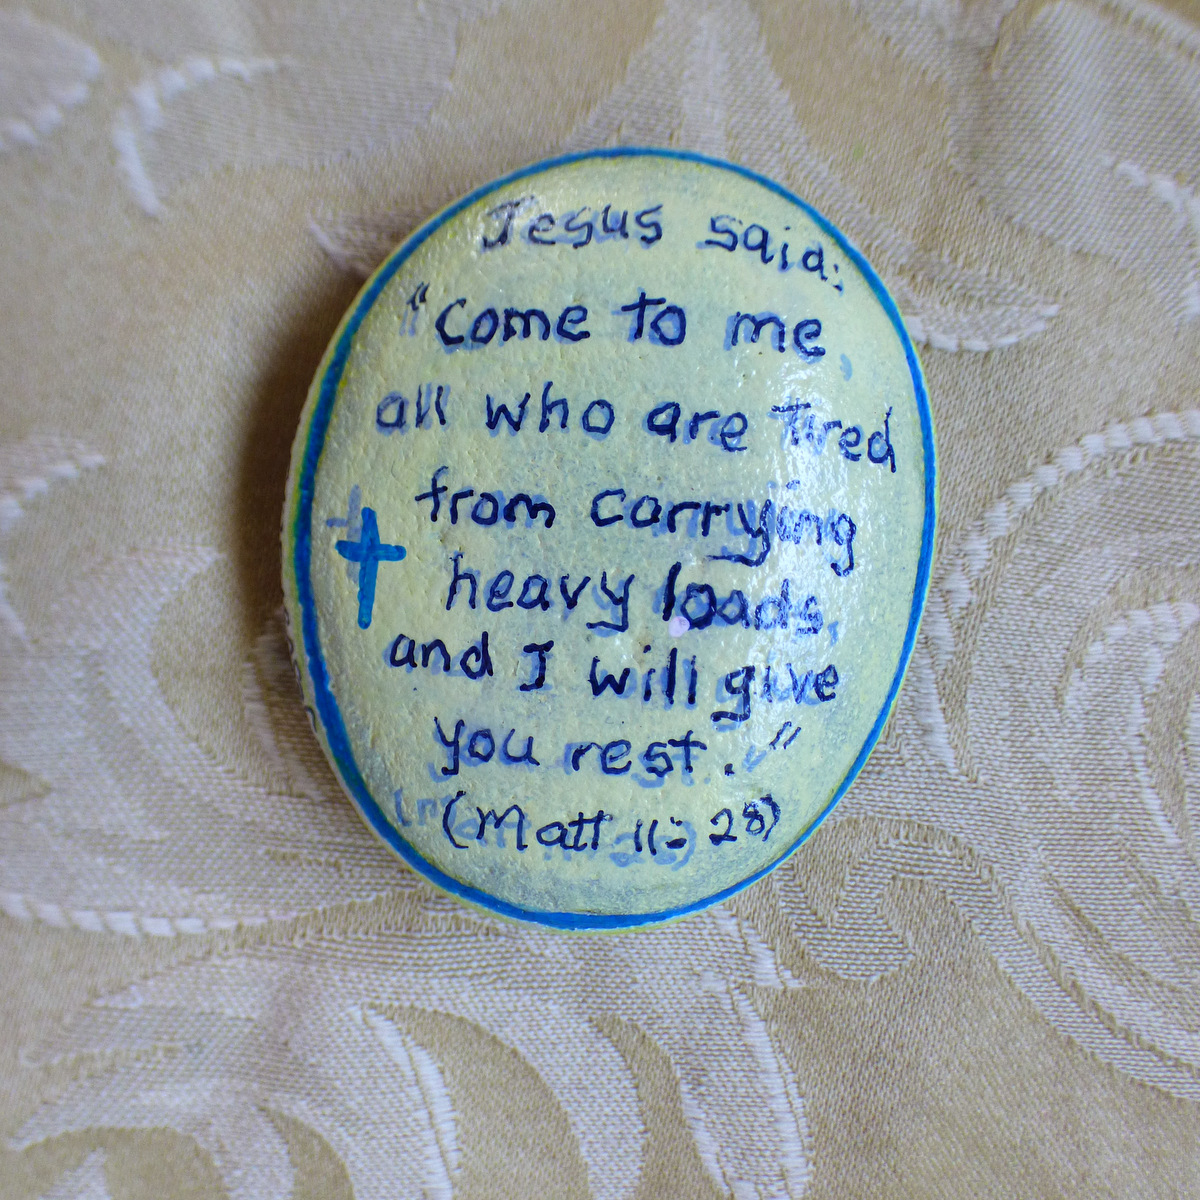 Jesus said:
"Come to me,
all who are Tired
from carrying
heavy loads,
and I will give
you rest."
(Matt 11:28)